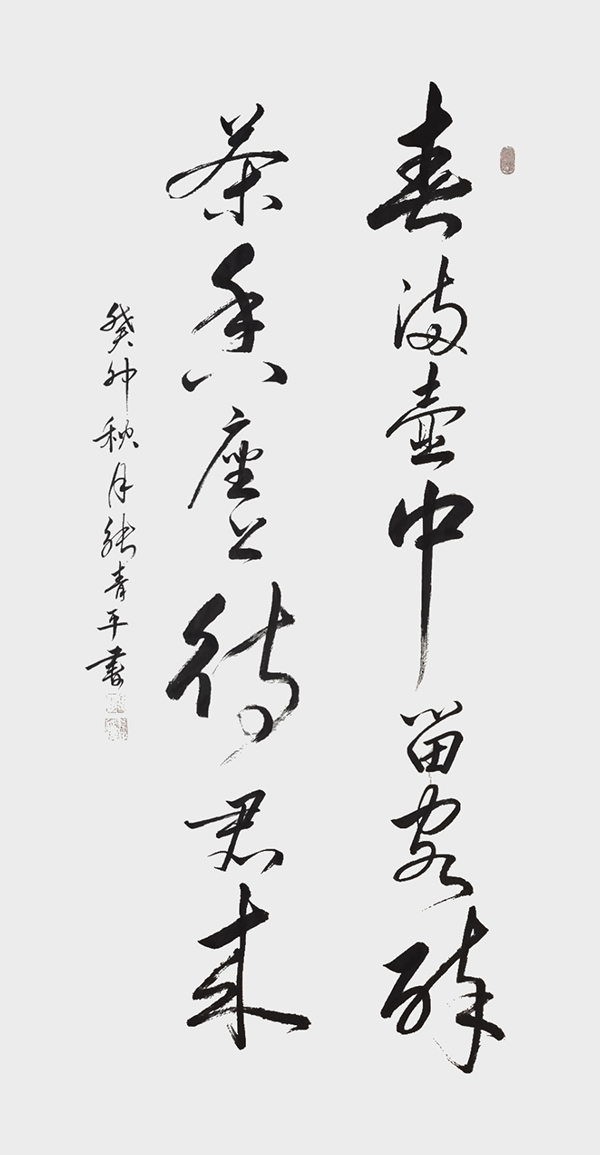 春满壶中留客醉
茶香座上待君来
癸卯秋月张青平书